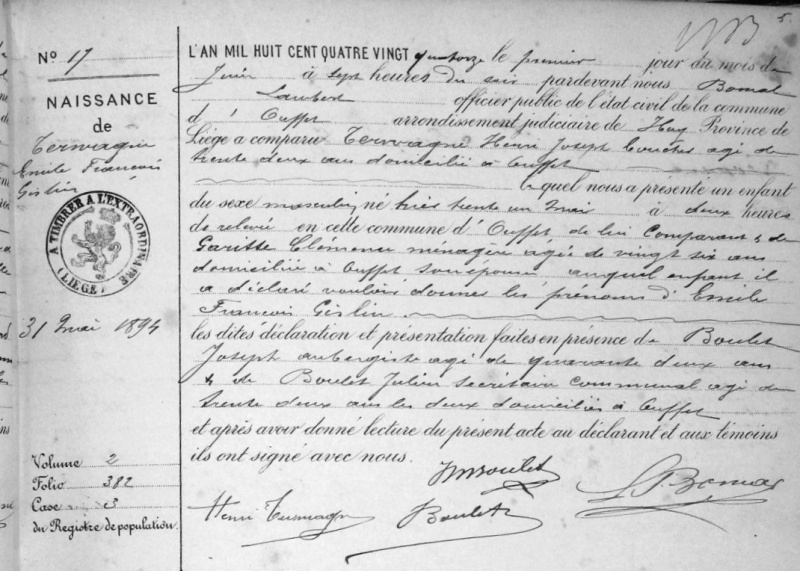 5.
N° 17
NAISSANCE
de
Tervagne
Emile François
Gislin
A TIMBRER A L'EXTRAORDINAIRE
(LIEGE)
31 Mai 1894
Volume 2
Folio 382
Case 3
du Registre de population.
L'AN MIL HUIT CENT QUATRE VINGT quatorze le premier jour du mois de
Juin à sept heures du soir pardevant nous Bomal
Lambert officier public de l'état civil de la commune
d'Ouffet arrondissement judiciaire de Huy Province de
Liège a comparu Tervagne Henri Joseph agé de
trente deux ans domicilié à Ouffet
lequel nous a présenté un enfant
du sexe masculin né hier trente un Mai à deux heures
de relevée en cette commune d'Ouffet de lui Comparant & de
Garitte Clémence ménagère agée de vingt six ans
domiciliée à Ouffet son épouse auquel enfant il
a déclaré vouloir donner les prénoms d'Emile
François Gislin
les dites déclaration et présentation faites en présence de Boulet
Joseph aubergiste agé de quarante deux ans
& de Boulet Julien Secrétaire communal agé de
trente deux ans les deux domiciliés à Ouffet
et après avoir donné lecture du présent acte au déclarant et aux témoins
ils ont signé avec nous.
Boulet
Bomal
Henri Tervagne
Boulet